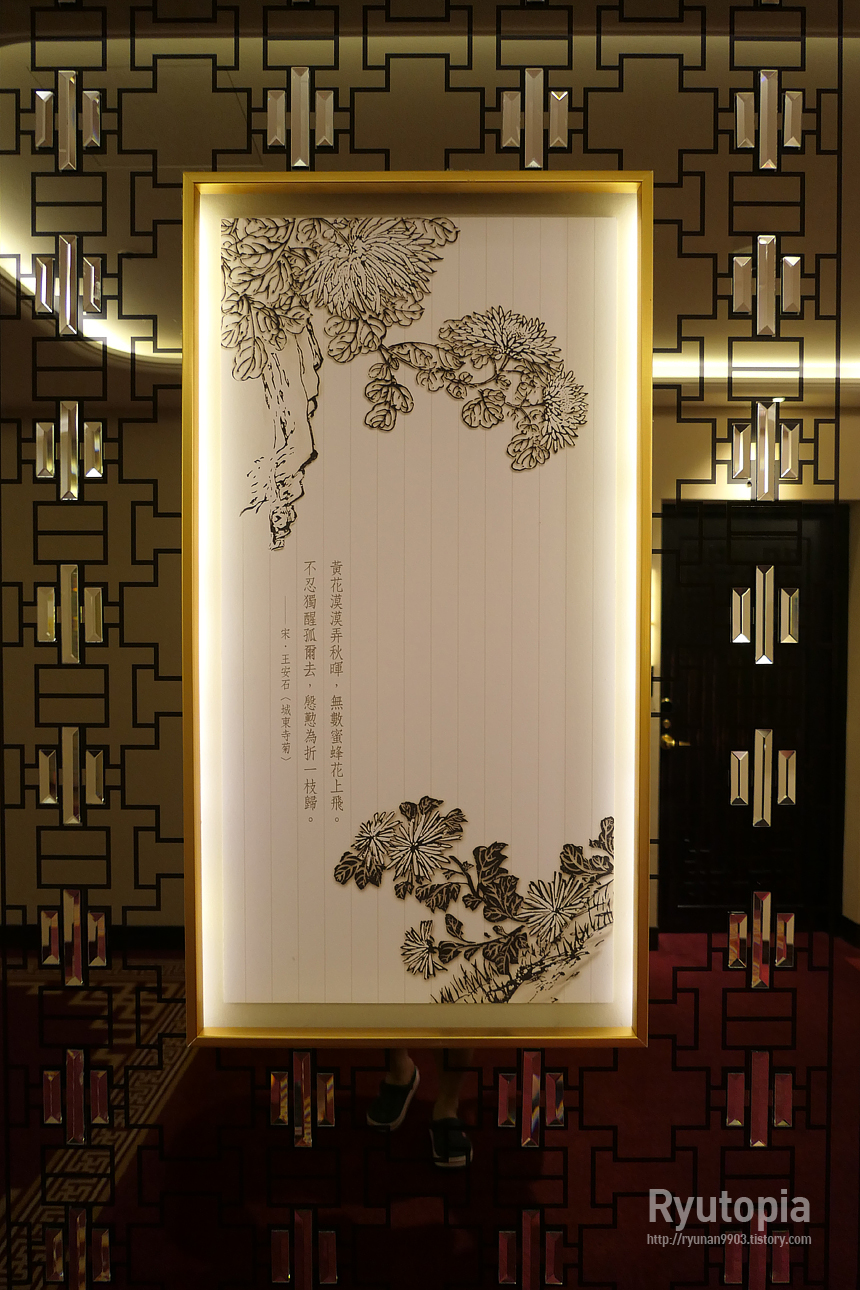 黃花漠漠弄秋暉，無數蜜蜂花上飛。
不忍獨醒孤爾去，慇懃為折一枝歸。
——宋．王安石〈城東寺菊〉
Ryutopia
http://ryunan9903.tistory.com